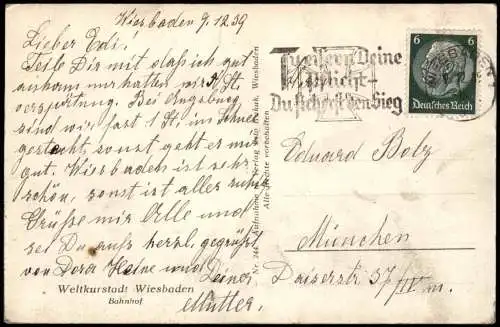 Wiesbaden 9.12.39
Lieber Edi!
Teile Dir mit daß ich gut
ankam nur hatten wir 1 St.
verspätung. Bei Augsburg
sind wir fast 1 St. im Schnee
gesteckt, sonst geht es mir
gut. Wiesbaden ist sehr
schön, sonst ist alles ruhig
Grüße mir Alle und
sei Du aufs herzl. gegrüßt
von Dora Heine und Deiner
Mutter.
Weltkurstadt Wiesbaden
Bahnhof
Aufnahme u. Verlag Wiesbaden
Alle Rechte vorbehalten
Tu eisern Deine
Pflicht-
Du sicherst den Sieg
6
6
Deutsches Reich
WIESBADEN 1
Eduard Bolz
München
Daiserstr. 37/IV m.